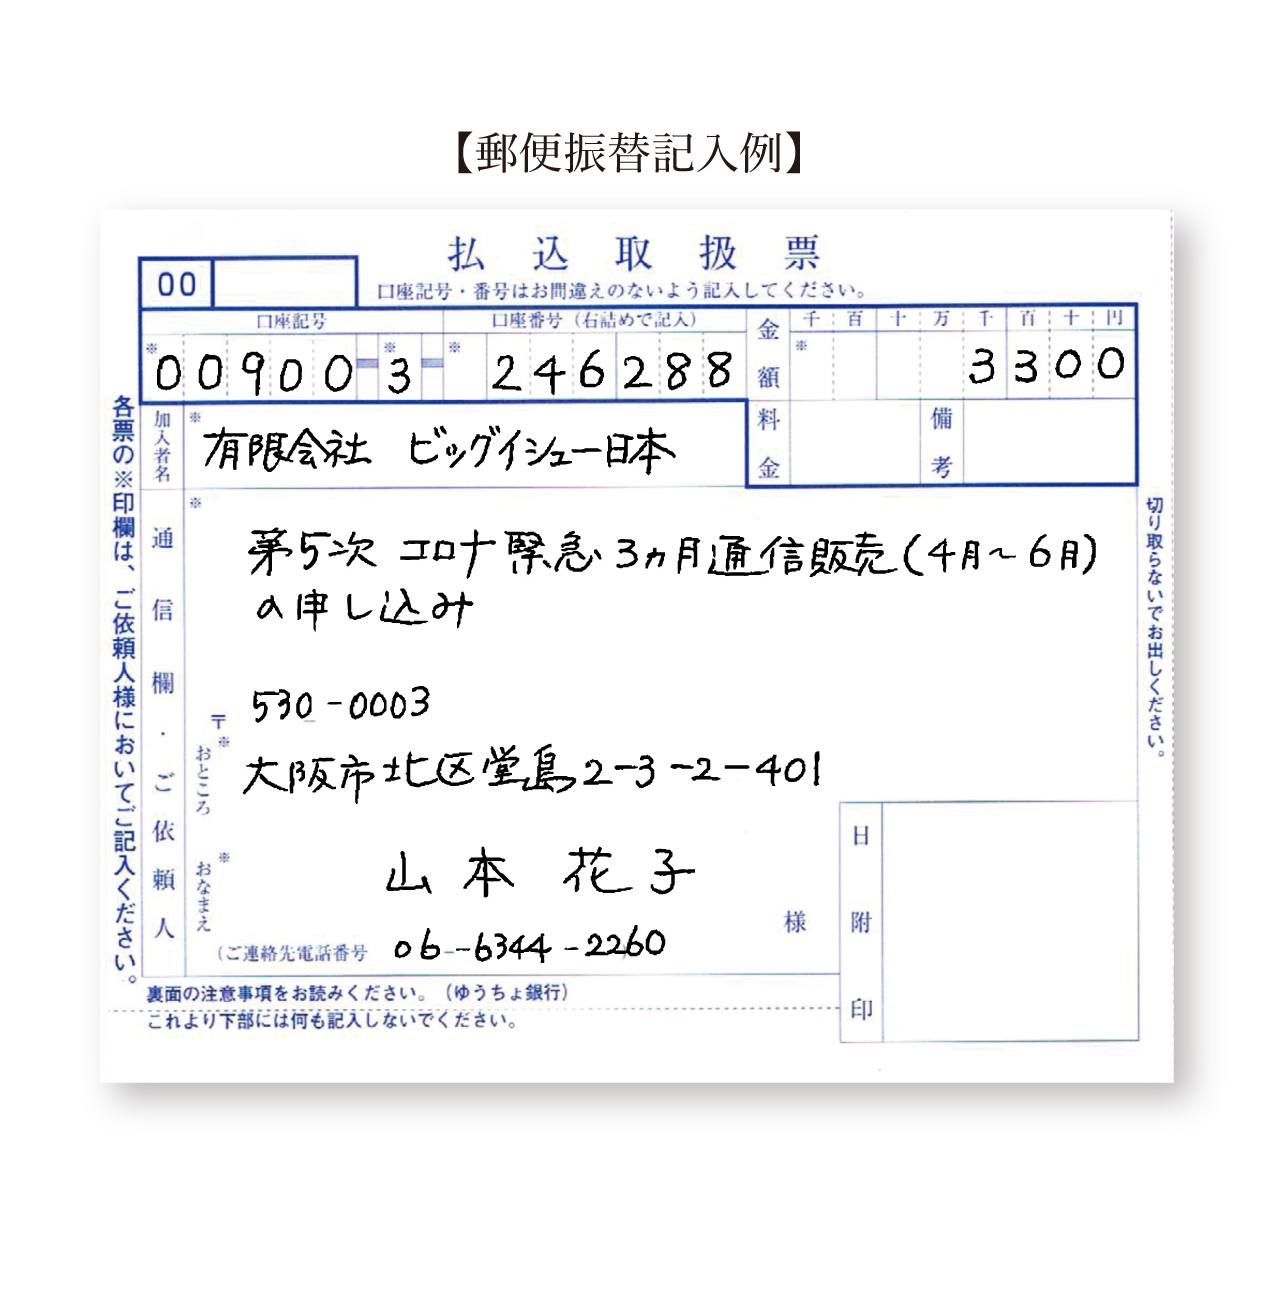 【郵便振替記入例】
払込取扱票
00
口座記号・番号はお間違えのないよう記入してください。
口座記号
口座番号（右詰めで記入）
金額
千 百 十 万 千 百 十 円
※ ※ ※ ※
00900-3-246288
3300
加入者名
※
有限会社 ビッグイシュー日本
料金
備考
各票の※印欄は、ご依頼人様においてご記入ください。
通信欄・ご依頼人
※
第5次 コロナ緊急3ヵ月通信販売(4月〜6月)
の申し込み
〒
530-0003
おところ
※
大阪市北区堂島2-3-2-401
おなまえ
※
山本 花子
様
（ご連絡先電話番号
06-6344-2260
）
日附印
切り取らないでお出しください。
裏面の注意事項をお読みください。（ゆうちょ銀行）
これより下部には何も記入しないでください。